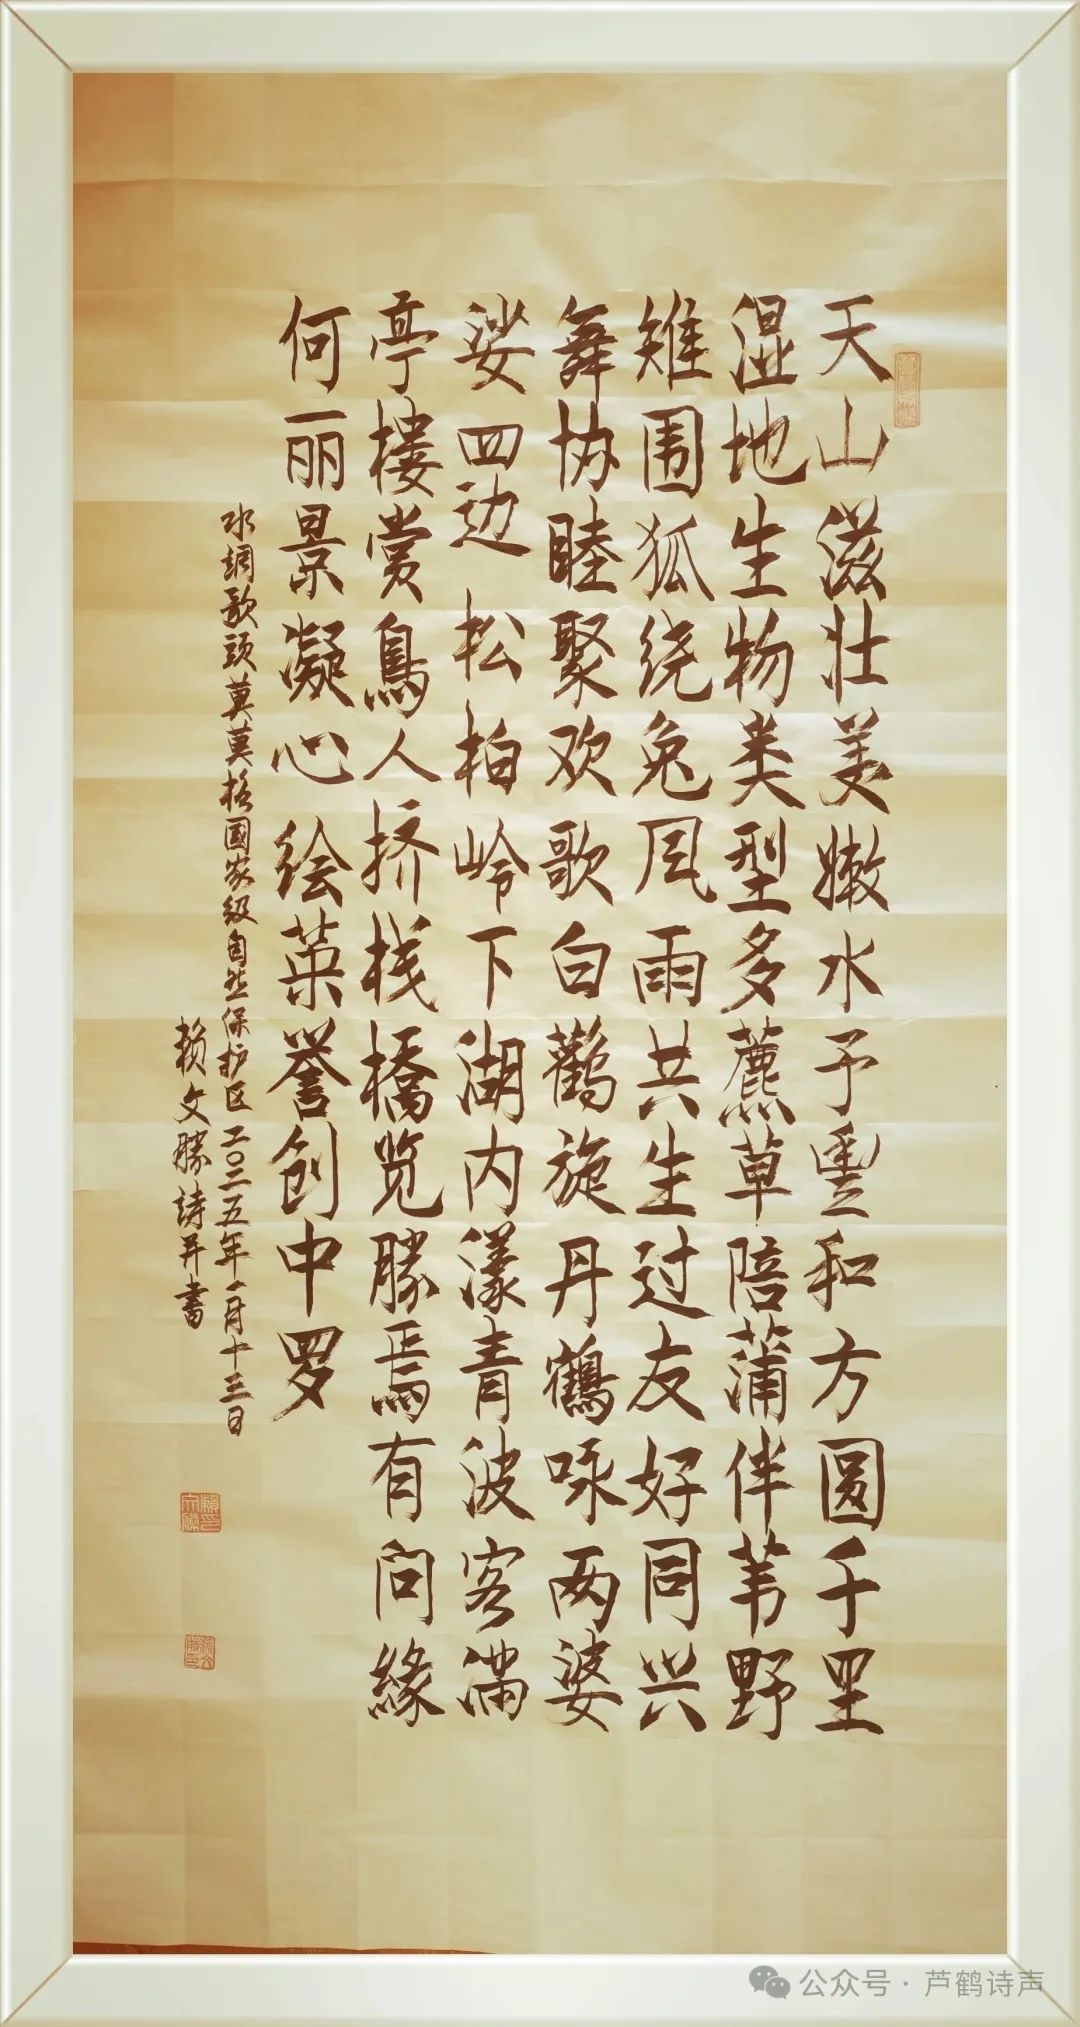 天山滋壮美嫩水予豐和方圆千里
湿地生物类型多藨草陪蒲伴苇野
雉围狐绕兔风雨共生过友好同兴
舞协睦聚欢歌白鸛旋丹鶴咏两婆
娑四边松柏岭下湖内漾青波客满
亭楼赏鳥人挤栈橋览勝焉有问緣
何丽景凝心绘菜誉创中罗
水調歌頭莫莫格國家级自然保护区二〇二五年一月十三日
赖文勝詩并書
公众号·芦鹤诗声